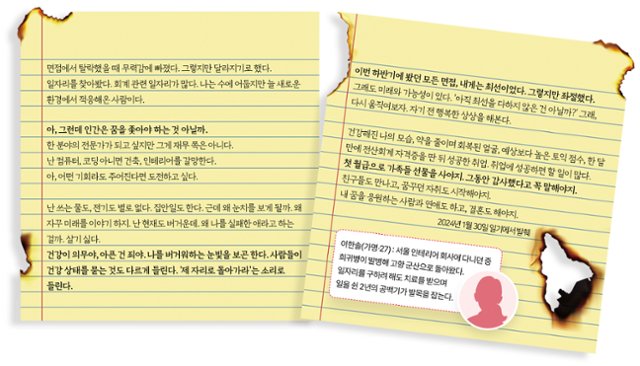 면접에서 탈락했을 때 무력감에 빠졌다. 그렇지만 달라지기로 했다.
일자리를 찾아봤다. 회계 관련 일자리가 많다. 나는 수에 어둡지만 늘 새로운
환경에서 적응해온 사람이다.
아, 그런데 인간은 꿈을 좇아야 하는 것 아닐까.
한 분야의 전문가가 되고 싶지만 그게 재무 쪽은 아니다.
난 컴퓨터, 코딩 아니면 건축, 인테리어를 갈망한다.
아, 어떤 기회라도 주어진다면 도전하고 싶다.
난 쓰는 물도, 전기도 별로 없다. 집안일도 한다. 근데 왜 눈치를 보게 될까. 왜
자꾸 미래를 이야기 하지. 난 현재도 버거운데. 왜 나를 실패한 애라고 하는
걸까. 살기 싫다.
건강이 의무야, 아픈 건 죄야. 나를 버거워하는 눈빛을 보곤 한다. 사람들이
건강 상태를 묻는 것도 다르게 들린다. '제 자리로 돌아가라'는 소리로
들린다.
이번 하반기에 봤던 모든 면접, 내게는 최선이었다. 그렇지만 좌절했다.
그래도 미래와 가능성이 있다. '아직 최선을 다하지 않은 건 아닐까?' 그래,
다시 움직여보자. 자기 전 행복한 상상을 해본다.
건강해진 나의 모습, 약을 줄이며 회복된 얼굴, 예상보다 높은 토익 점수, 한 달
만에 전산회계 자격증을 딴 뒤 성공한 취업. 취업에 성공하면 할 일이 많다.
첫 월급으로 가족들 선물을 사야지. 그동안 감사했다고 꼭 말해야지.
친구들도 만나고, 꿈꾸던 자취도 시작해야지.
내 꿈을 응원하는 사람과 연애도 하고, 결혼도 해야지.
2024년 1월 30일 일기에서 발췌
이한솔(가명·27) : 서울 인테리어 회사에 다니던 중
희귀병이 발병해 고향 군산으로 돌아왔다.
일자리를 구하려 해도 치료를 받으며
일을 쉰 2년의 공백기가 발목을 잡는다.